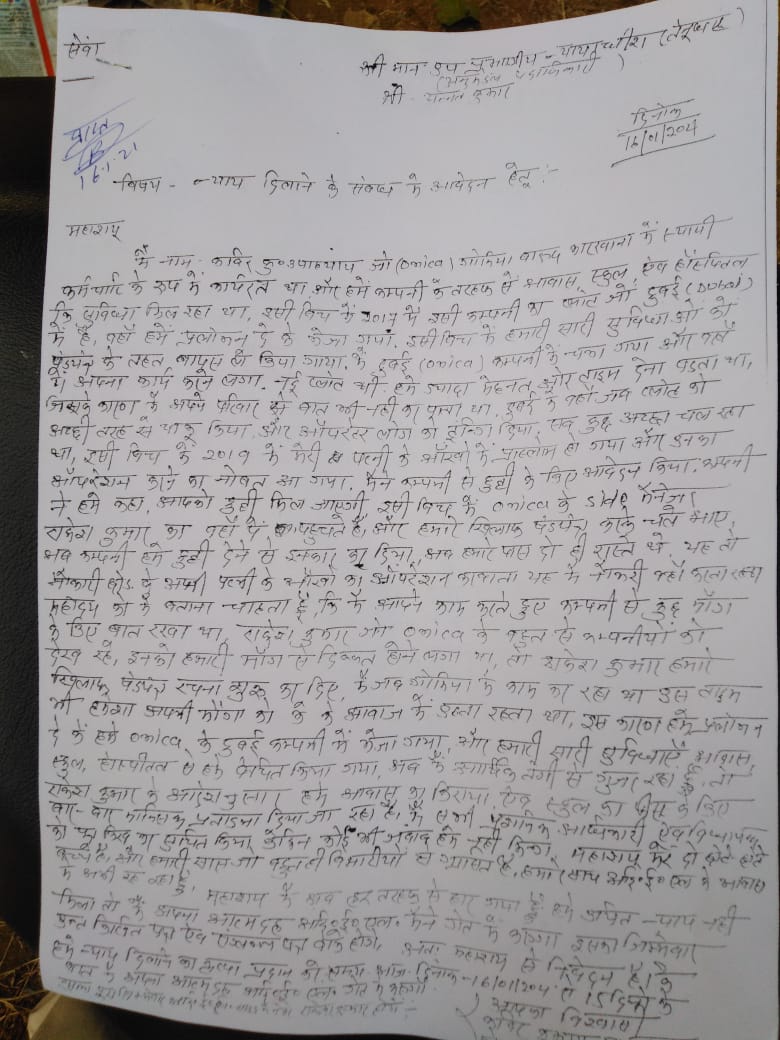 सेवा
श्री मान उप प्रभागीय न्यायाधीश (तेनुघाट)
(अनुमंडल पदाधिकारी)
श्री
दिनांक
16/01/204
16.1.21
विषय - न्याय दिलाने के संबंध के आवेदन हेतू :-
महाशय
मै नाम कबिर कु॰ उपाध्याय जो (Omica) गोमिया बारूद कारखाना में स्थायी
कर्मचारि के रुप में कार्यरत था और हमें कम्पनी के तरफ से आवास, स्कूल एंव हॉस्पिटल
कि सुविधा मिल रहा था, इसी बिच में 2017 में इसी कम्पनी का प्लॉट जो दुबई (Dubai)
में है, वहाँ हमें प्रलोभन दे के भेजा गया. इसी बिच में हमारी सारी सुविधाओं को
के तहत, वापस ले लिया गया. मै दुबई (omica) कम्पनी में चला गया और वहाँ
पे अपना कार्य करने लगा. नई प्लांट थी हमे ज्यादा मेहनत और टाइम देना पडता था,
जिसके कारण मै अपने परिवार से बात भी नही कर पाता था. दुबई के वहाँ जब प्लांट को
अच्छी तरह से चालू किया. और ऑपरेटर लोग को ट्रेनिंग दिया. सब कुछ अच्छा चल रहा
था, इसी बिच में 2019 में मेरी पत्नी के आँखों में प्रोब्लोम हो गया और उनका
ऑपरेशन करने का नोबत आ गया. मैने कम्पनी से छुट्टी के लिए आवेदन किया. कम्पनी
ने हमे कहा, आपको छुट्टी मिल जाएगी, इसी बिच में omica के मैनेजर
राकेश कुमार का वहाँ पे पहुचते है, और हमारे खिलाफ षंडयंत्र करके चले आए,
अब कम्पनी हमे छुट्टी देने से इनकार कर दिया, अब हमारे पास दो ही रास्ते थे, यह तो
नौकरी छोड़ दे अपनी पत्नी के आँखों का ऑपरेशन करवाता यह मै नौकरी वहाँ करता रहता
महोदय को मै बताना चाहता हूँ, कि मै आपने काम करते हुए कम्पनी से कुछ माँग
के लिए बात रखा था, राकेश कुमार जो omica के बहुत से कम्पनीयो को
देख रहे, इनको हमारी माँग से दिक्कत होने लगा था, तो राकेश कुमार हमारे
खिलाफ षंडयंत्र रचना शुरू कर दिए, मै जब गोमिया में काम कर रहा था उस टाइम
भी हमेशा अपनी माँगो को ले के आवाज में उठता रहता था, इस कारण हमे प्रलोभन
दे के हमे omica के दुबई कम्पनी में भेजा गया, और हमारी सारी सुविधाएँ, आवास,
स्कूल, हॉस्पीटल से हमे बंचित किया गया, अब मै आर्थिक तंगी से गुजर रहा हूँ, तो
राकेश कुमार के आदेशानुसार हमे आवास का किराया, एंव स्कूल का फीस के लिए
बार-बार मानसिक प्रताडना दिया जा रहा है, मै सभी प्रशासनिक अधिकारी एंव विधायक
को पत्र लिख कर सूचित किया, लेकिन कोई भी जवाब हमे नही मिला, महाशय मेरे दो छोटे छोटे
बच्चे है, और हमारी सास जो बहुत ही बिमारीयो से ग्रसित है, हमारे साथ आई॰ई॰एल के आवास
में अभी रह रहा है,
महाशय मै अब हर तरफ से हार गया हूँ, हमे उचित न्याय नही
मिला तो मै अपना आत्मदाह आई॰ई॰एल॰ मैन गेट में करुगा इसका जिम्मेवार
अतः महाशय से निवेदन है कि
हमे न्याय दिलाने का कृपया प्रदान करे आज दिनांक - 16/01/204 से 15 दिन के
बाद मै अपना आत्मदाह आई॰ई॰एल॰ गेट में करुगा
आपका विश्वासी
कबिर कुमार